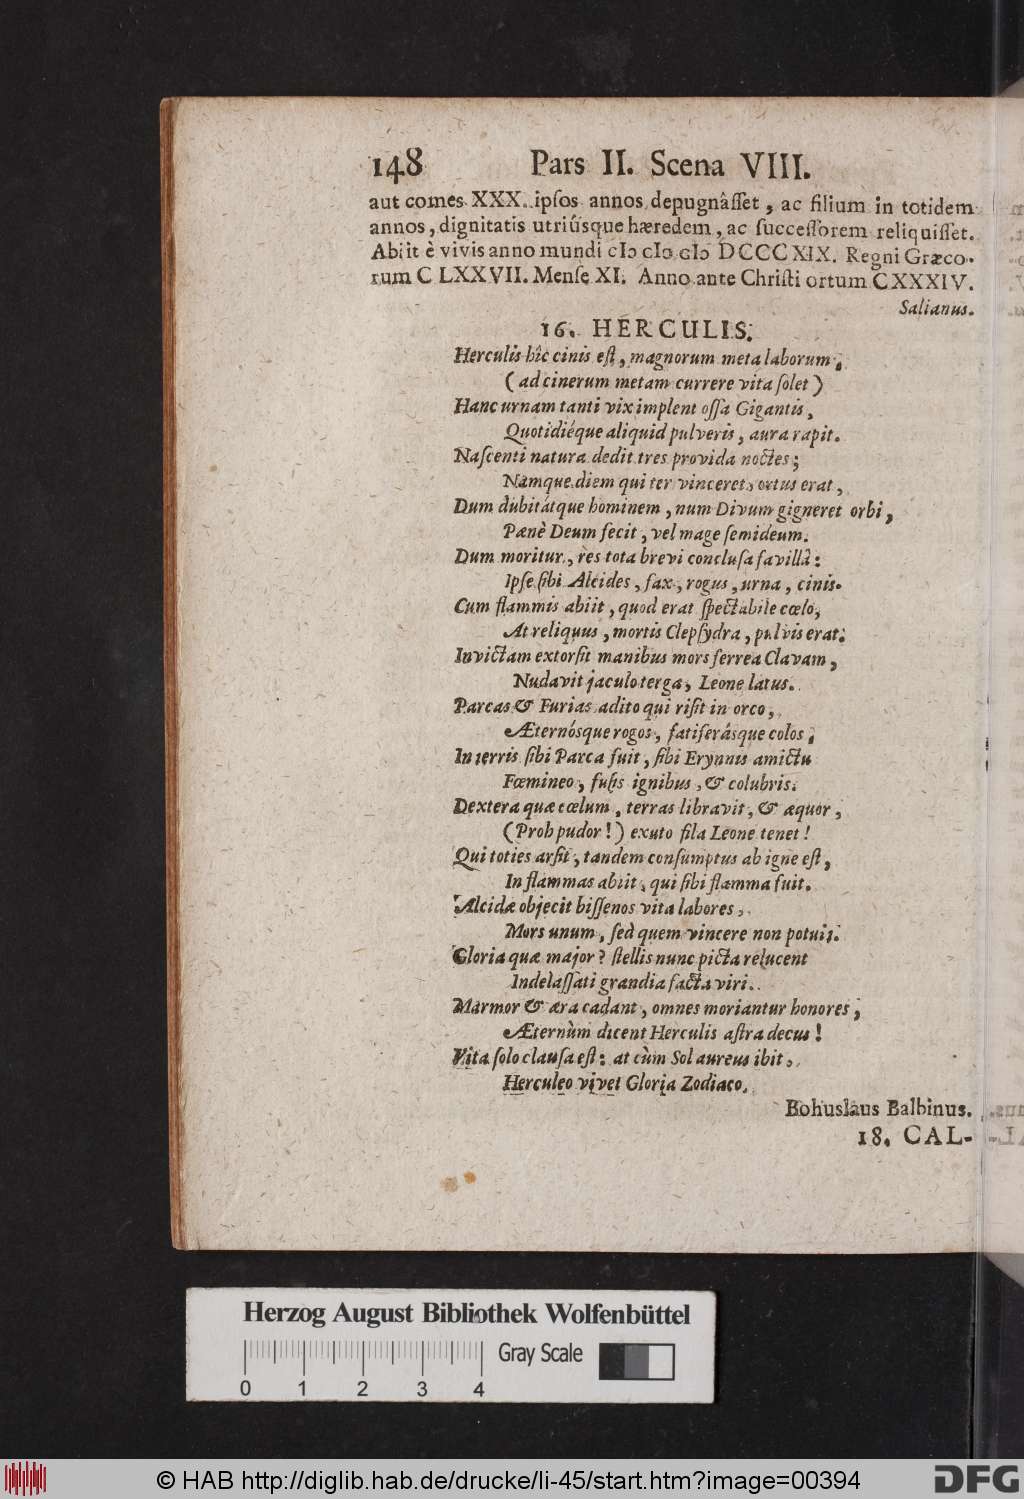 148 Pars II. Scena VIII.
aut comes XXX. ipsos annos depugnâſſet, ac filium in totidem
annos, dignitatis utriúsque hæredem, ac ſucceſſorem reliquiſſet.
Abiit è vivis anno mundi cIↄ cIↄ cIↄ DCCCXIX. Regni Græco-
rum CLXXVII. Menſe XI. Anno ante Chriſti ortum CXXXIV.
Salianus.
16. HERCULIS.
Herculis hîc cinis eſt, magnorum meta laborum,
(ad cinerum metam currere vita ſolet)
Hanc urnam tanti vix implent oſſa Gigantis,
Quotidiéque aliquid pulveris, aura rapit.
Naſcenti natura dedit tres provida noctes;
Namque diem qui ter vinceret, ortus erat,
Dum dubitátque hominem, num Divum gigneret orbi,
Pænè Deum fecit, vel mage ſemideum.
Dum moritur, res tota brevi concluſa favillâ:
Ipſe ſibi Alcides, fax, rogus, urna, cinis.
Cum flammis abiit, quod erat ſpectabile cœlo,
At reliquus, mortis Clepſydra, pulvis erat.
Invictam extorſit manibus mors ferrea Clavam,
Nudavit jaculo terga, Leone latus.
Parcas & Furias adito qui riſit in orco,
Æternósque rogos, fatiferásque colos,
In terris ſibi Parca fuit, ſibi Erynnis amictu
Fœmineo, fuſis ignibus, & colubris.
Dextera quæ cœlum, terras libravit, & æquor,
(Proh pudor!) exuto fila Leone tenet!
Qui toties arſit, tandem conſumptus ab igne eſt,
In flammas abiit, qui ſibi flamma fuit.
Alcidæ objecit biſſenos vita labores,
Mors unum, ſed quem vincere non potuit.
Gloria quæ major? ſtellis nunc picta relucent
Indelaſſati grandia facta viri.
Marmor & æra cadant, omnes moriantur honores,
Æternùm dicent Herculis aſtra decus!
Vita ſolo clauſa eſt: at cùm Sol aureus ibit,
Herculeo vivet Gloria Zodiaco.
Bohuslaus Balbinus.
18. CAL-
Herzog August Bibliothek Wolfenbüttel
Gray Scale
0 1 2 3 4
© HAB http://diglib.hab.de/drucke/li-45/start.htm?image=00394
DFG